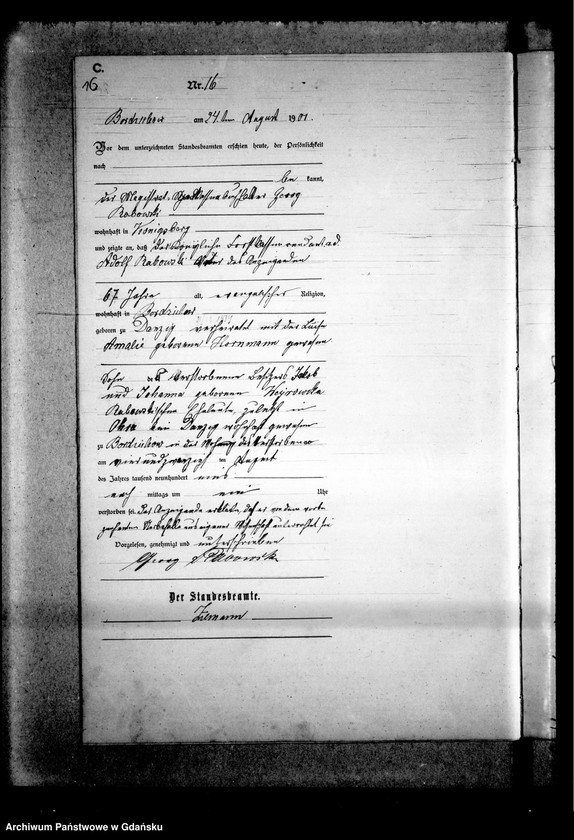 C.
16
Nr. 16
am 24 ten August 1901.
Vor dem unterzeichneten Standesbeamten erschien heute, der Persönlichkeit
nach
be kannt,
der Magistrat- Georg
Rabowski
wohnhaft in Königsberg
und zeigte an, daß der Königliche
Adolf Rabowski Vater des Anzeigenden
67 Jahre alt, evangelischer Religion,
wohnhaft in
geboren zu Danzig verheiratet mit der
Amalie geborene Hornmann gewesene
Sohn des Verstorbenen Besitzers Jakob
und Johanna geborene
Rabowskischen Eheleute, zuletzt in
Ohra bei Danzig wohnhaft gewesen
zu in der Wohnung des Verstorbenen
am vierundzwanzigsten August
des Jahres tausend neunhundert eins
nach mittags um ein Uhr
verstorben sei. Der Anzeigende erklärte, daß er von dem
aus eigener Wissenschaft unterrichtet sei
Vorgelesen, genehmigt und unterschrieben
Georg Rabowski
Der Standesbeamte.
Archiwum Państwowe w Gdańsku